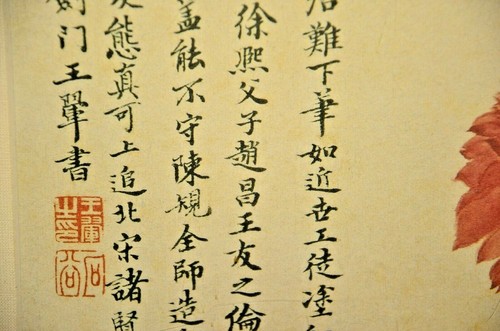 難下筆如近世工徒塗
徐熈父子趙昌王友之倫
能不守陳規全師造
態真可上追北宋諸賢
門王翬書
王翬之印
石谷